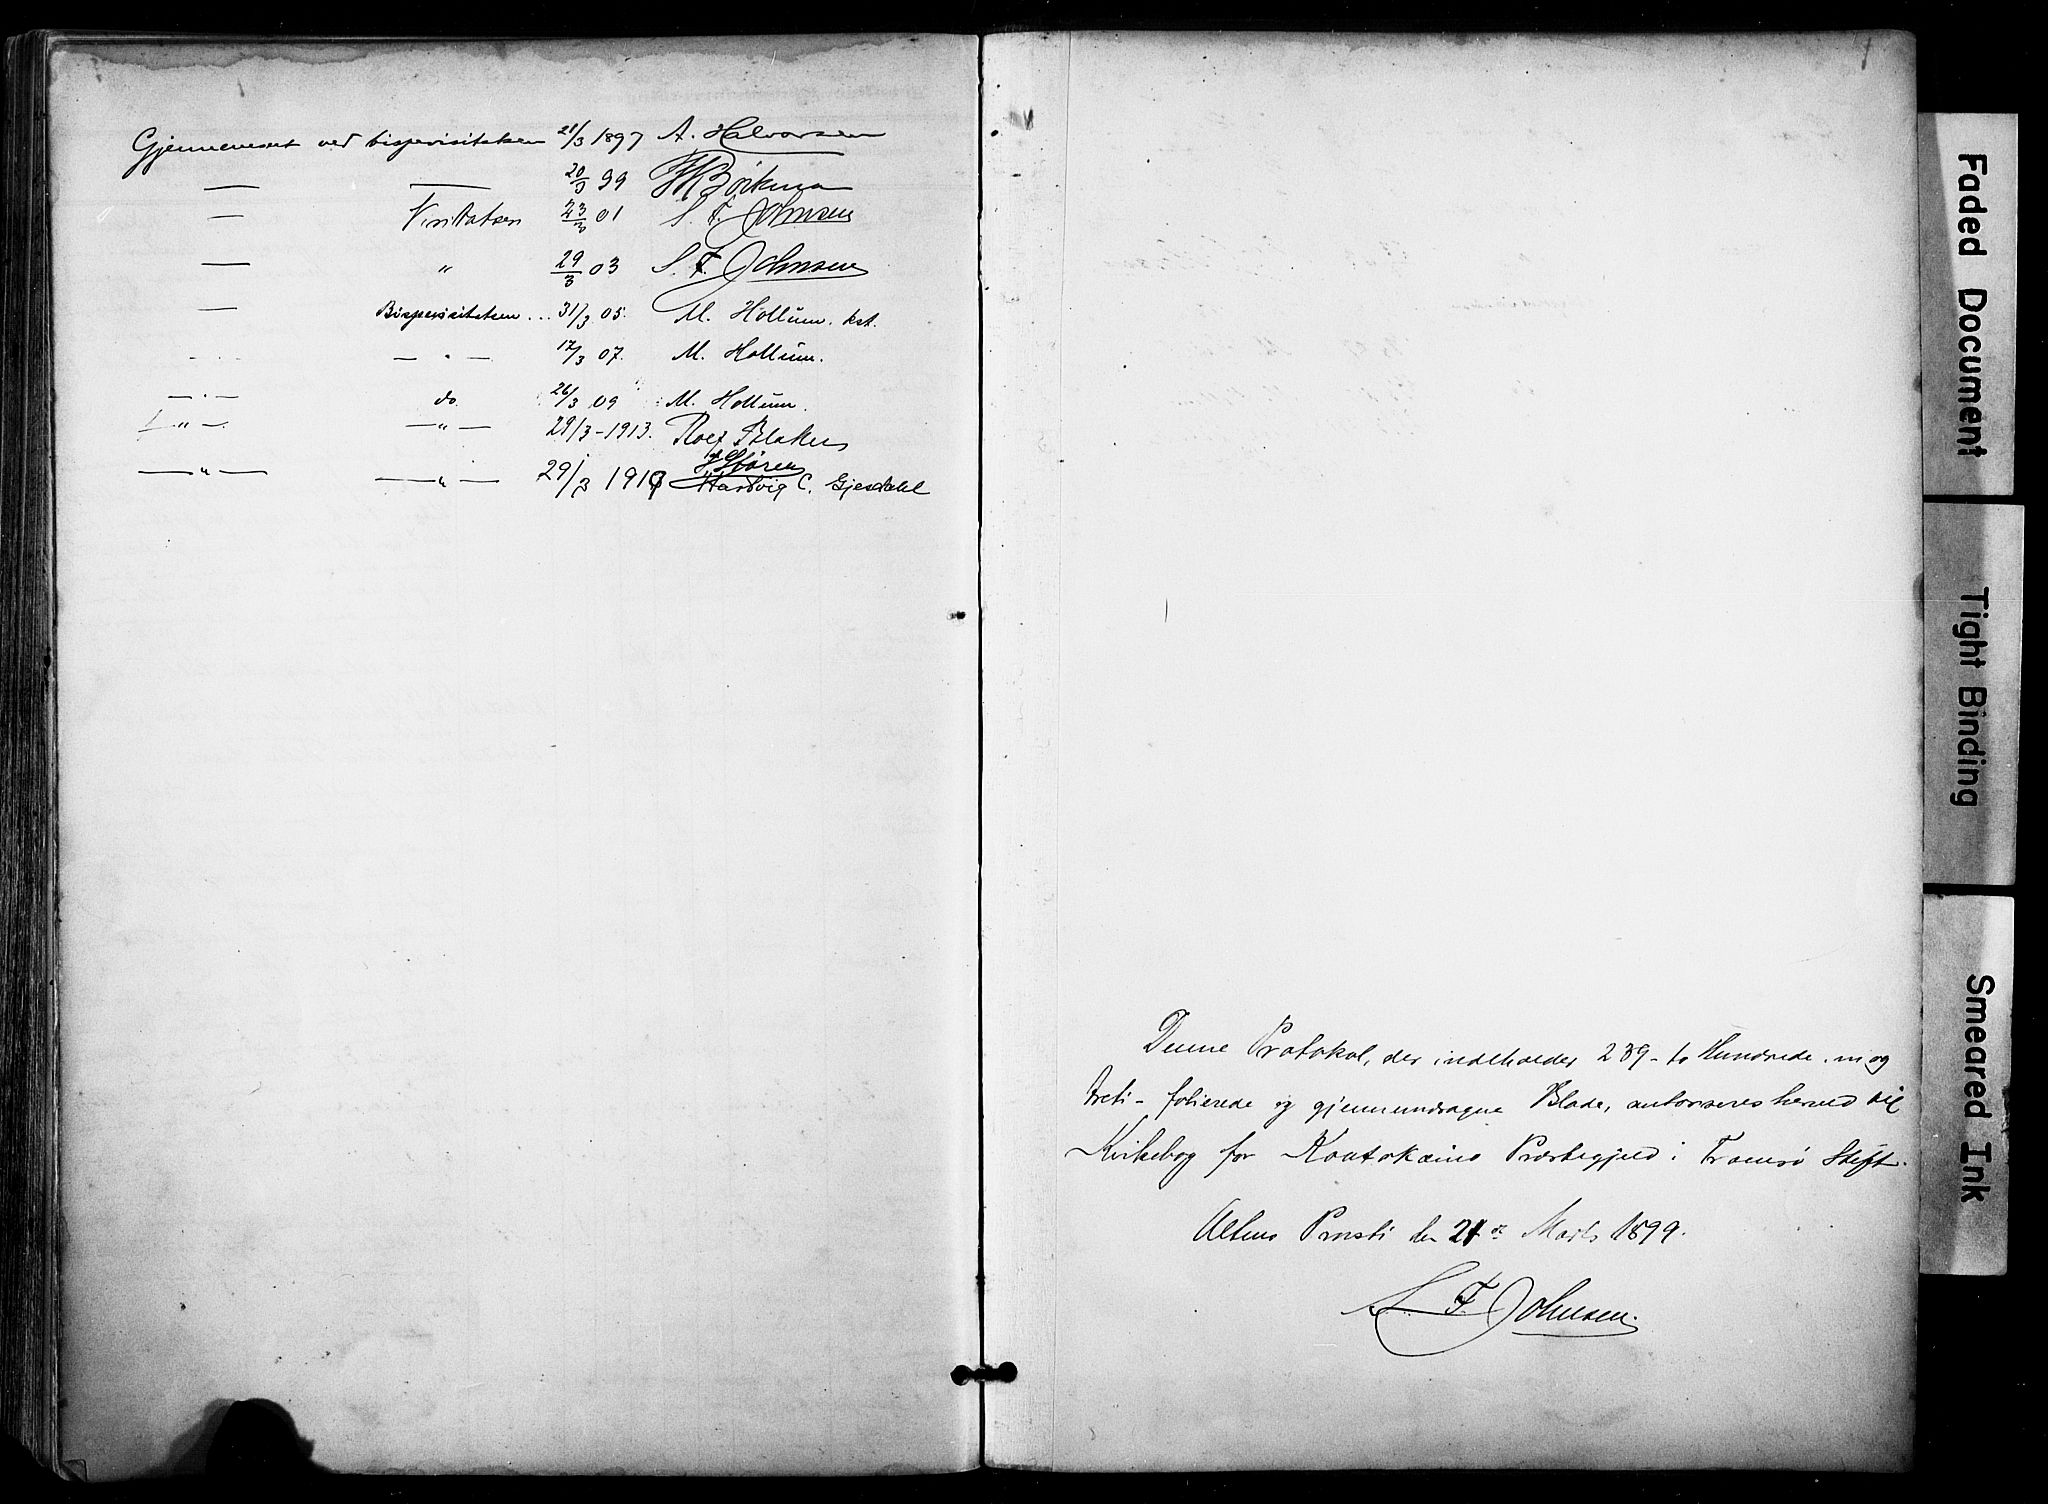 Gjennemseet ved bispevisitatsen 21/3 1897 A. Halvorsen
— — 20/3 99
— Visitatsen 23/3 01 S. F. Johnsen
— " 29/3 03 S. F. Johnsen
— Bispevisitatsen .. 31/3 05. M. Hollum. kst.
— " — 17/3 07. M. Hollum.
— " — do. 26/3 09 M. Hollum.
— " — — " — 29/3 - 1913. Rolf
— " — — " — 29/3 191 Hartvig C. Gjesdahl
Denne Protokol, der indeholder 239 - to Hundrede . ni og
treti - folierede og gjennemdragne Blade, autoriseres herved til
Kirkebog for Koutokæino Præstegjeld i Tromsø Stift.
Altens Provsti den 21de Marts 1899.
S. F. Johnsen.
Faded Document
Tight Binding
Smeared Ink